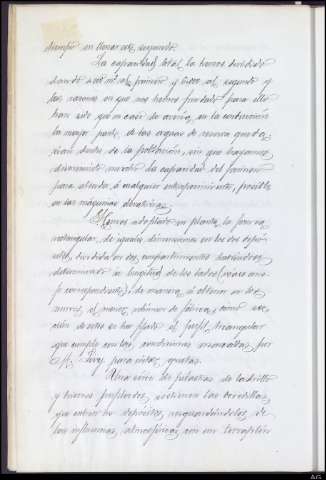 tiempo en llenar este segundo.
La capacidad total la hemos dividido
dando 4000 m³ al primero y al segundo y
las razones en que nos hemos fundado para ello
han sido que in caso de avería, en la conducción
la mayor parte de las aguas de reserva queda
rian dentro de la población, sin que hayamos
disminuido mucho la capacidad del primero
para atender á cualquier entorpecimiento, posible
en las máquinas elevatorias.
Hemos adoptado en planta la forma
rectangular, de iguales dimensiones en los dos depó
sitos, dividida en dos compartimentos habiéndose
determinado la longitud de los lados (véase ane
jo correspondiente), de manera á obtener en los
muros, el menor volúmen de fábrica, como sec
ción de estos se ha fijado el perfil triangular
que cumple con las condiciones marcadas por
Mr. Levy para estas, presas.
Una série de pilastras de ladrillo
y huecos perfilados, sostienen las bovedillas
que cubren los depósitos, resguardándolos de
las influencias, atmosféricas con un terraplén